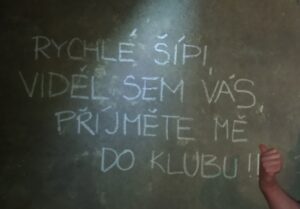 RYCHLÉ ŠÍPI,
VIDĚL SEM VÁS,
PŘÍJMĚTE MĚ
DO KLUBU!!